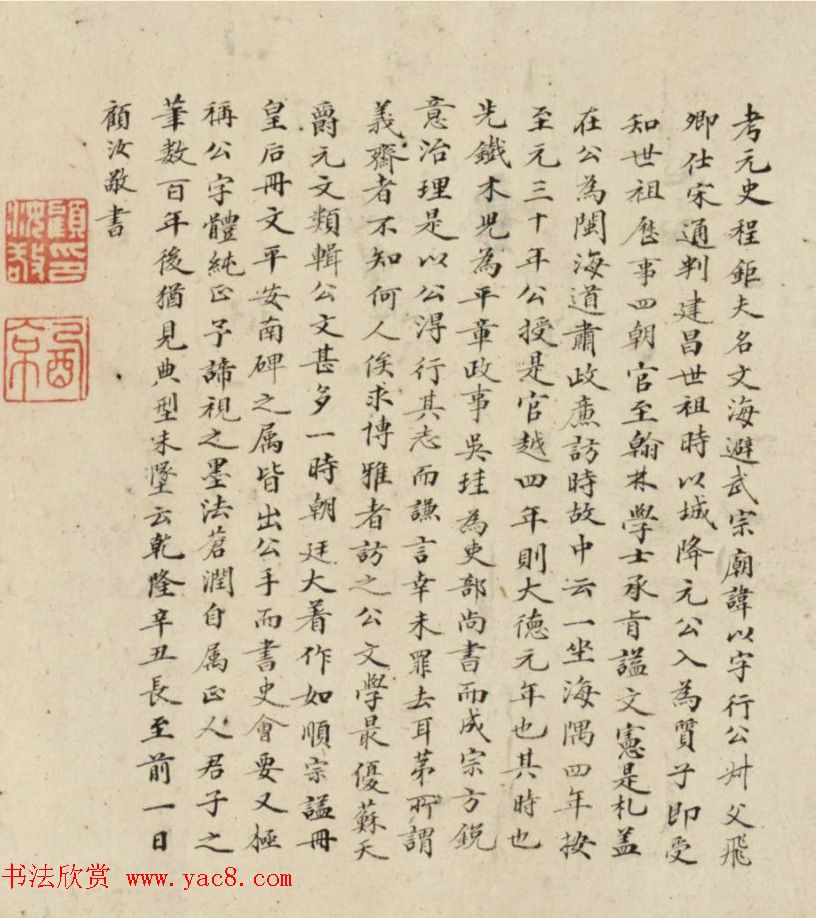 考元史程鉅夫名文海避武宗廟諱以字行公卅父飛
卿仕宋通判建昌世祖時以城降元公入為質子即受
知世祖歷事四朝官至翰林學士承旨諡文憲是札蓋
在公為閩海道肅政廉訪時故中云一坐海隅四年按
至元三十年公授是官越四年則大德元年也其時也
先鐵木児為平章政事吳珪為吏部尚書而成宗方銳
意治理是以公得行其志而謙言幸未罪去耳苐所謂
義齋者不知何人俟求博雅者訪之公文學最優蘇天
爵元文類輯公文甚多一時朝廷大著作如順宗諡冊
皇后冊文平安南碑之属皆出公手而書史會要又極
稱公字體純正予諦視之墨法蒼潤自属正人君子之
筆数百年後猶見典型未墜云乾隆辛丑長至前一日
顧汝敬書
顧印汝敬
书法欣赏 www.yac8.com